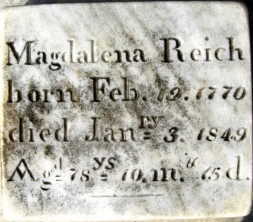 Magdalena Reich
born Feb. 19. 1770
died Janry 3. 1849
Agd 78 ys 10. m. & 15 d.